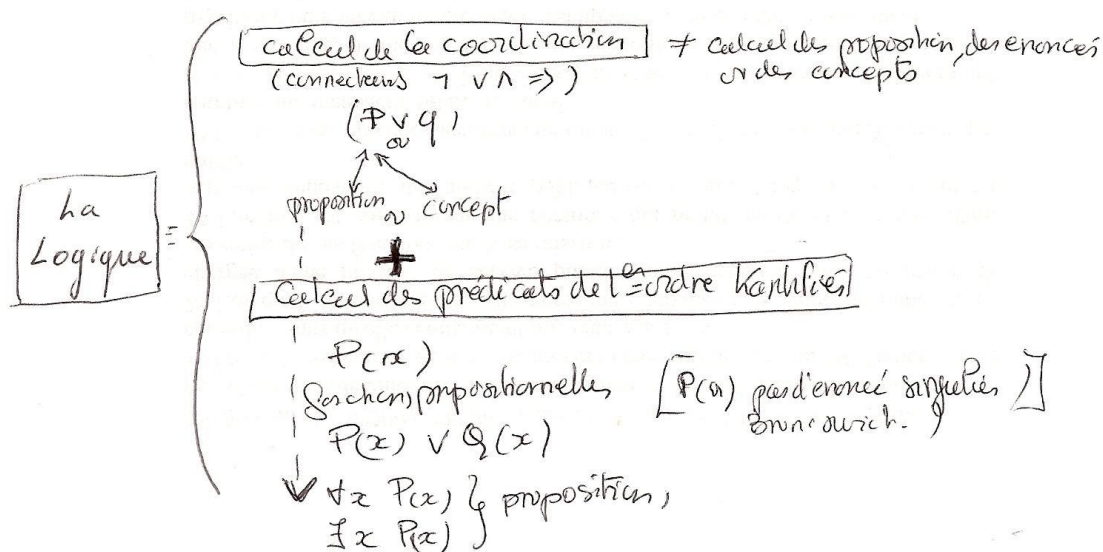 calcul de la coordination ≠ calcul des proposition, des énoncés
ou des concepts
(connecteurs ¬ ∨ ∧ ⇒)
(P ∨ q)
ou
proposition ou concept
La
Logique ≡
+
Calcul des prédicats de 1er ordre
P(x)
fonctions propositionnelles [P(a) pas d'énoncé singulier
P(x) ∨ Q(x)
∀x P(x) } proposition,
∃x P(x)